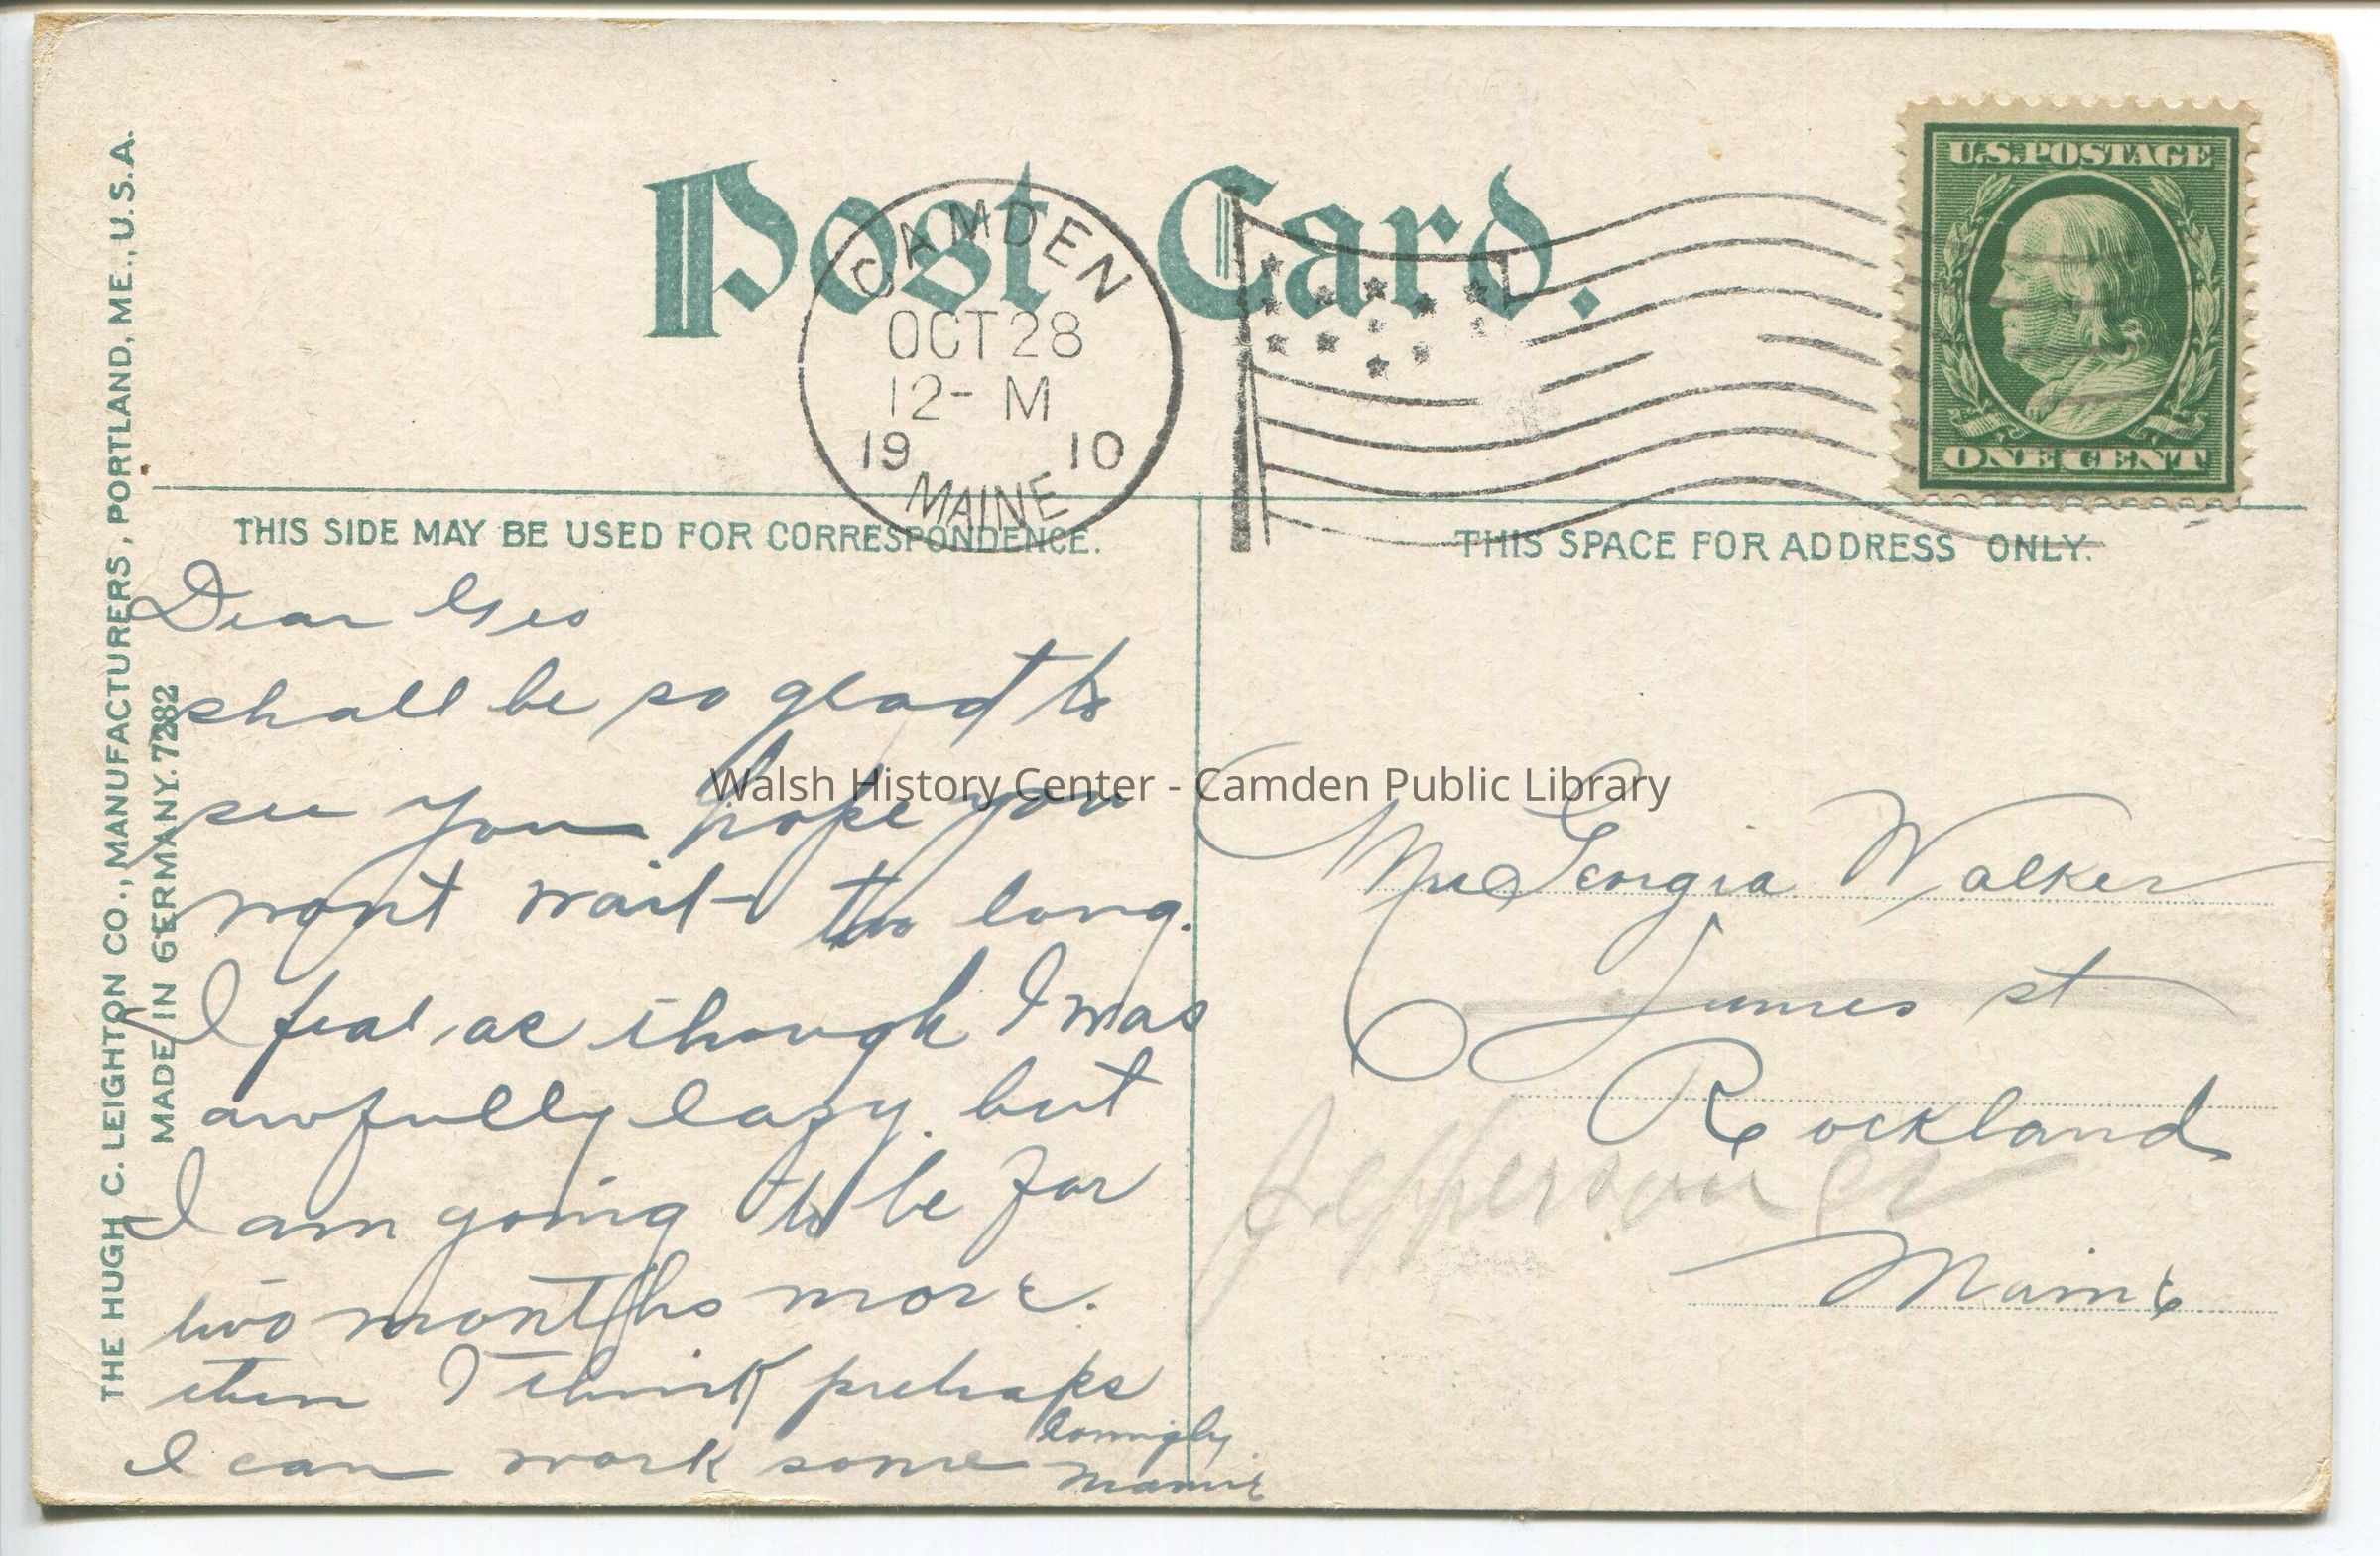 Post Card.
U.S. POSTAGE
ONE CENT
CAMDEN
OCT 28
12- M
19 10
MAINE
THE HUGH C. LEIGHTON CO., MANUFACTURERS, PORTLAND, ME., U.S.A.
MADE IN GERMANY. 7282
THIS SIDE MAY BE USED FOR CORRESPONDENCE.
THIS SPACE FOR ADDRESS ONLY.
Dear Geo
shall be so glad to
see you hope you
wont wait too long.
I feal as though I was
awfully lazy. but
I am going to be for
two months more.
then I think prehaps
I can work some
lovingly
Mamie
Walsh History Center - Camden Public Library
Georgia Walker
James st
Rockland
Maine